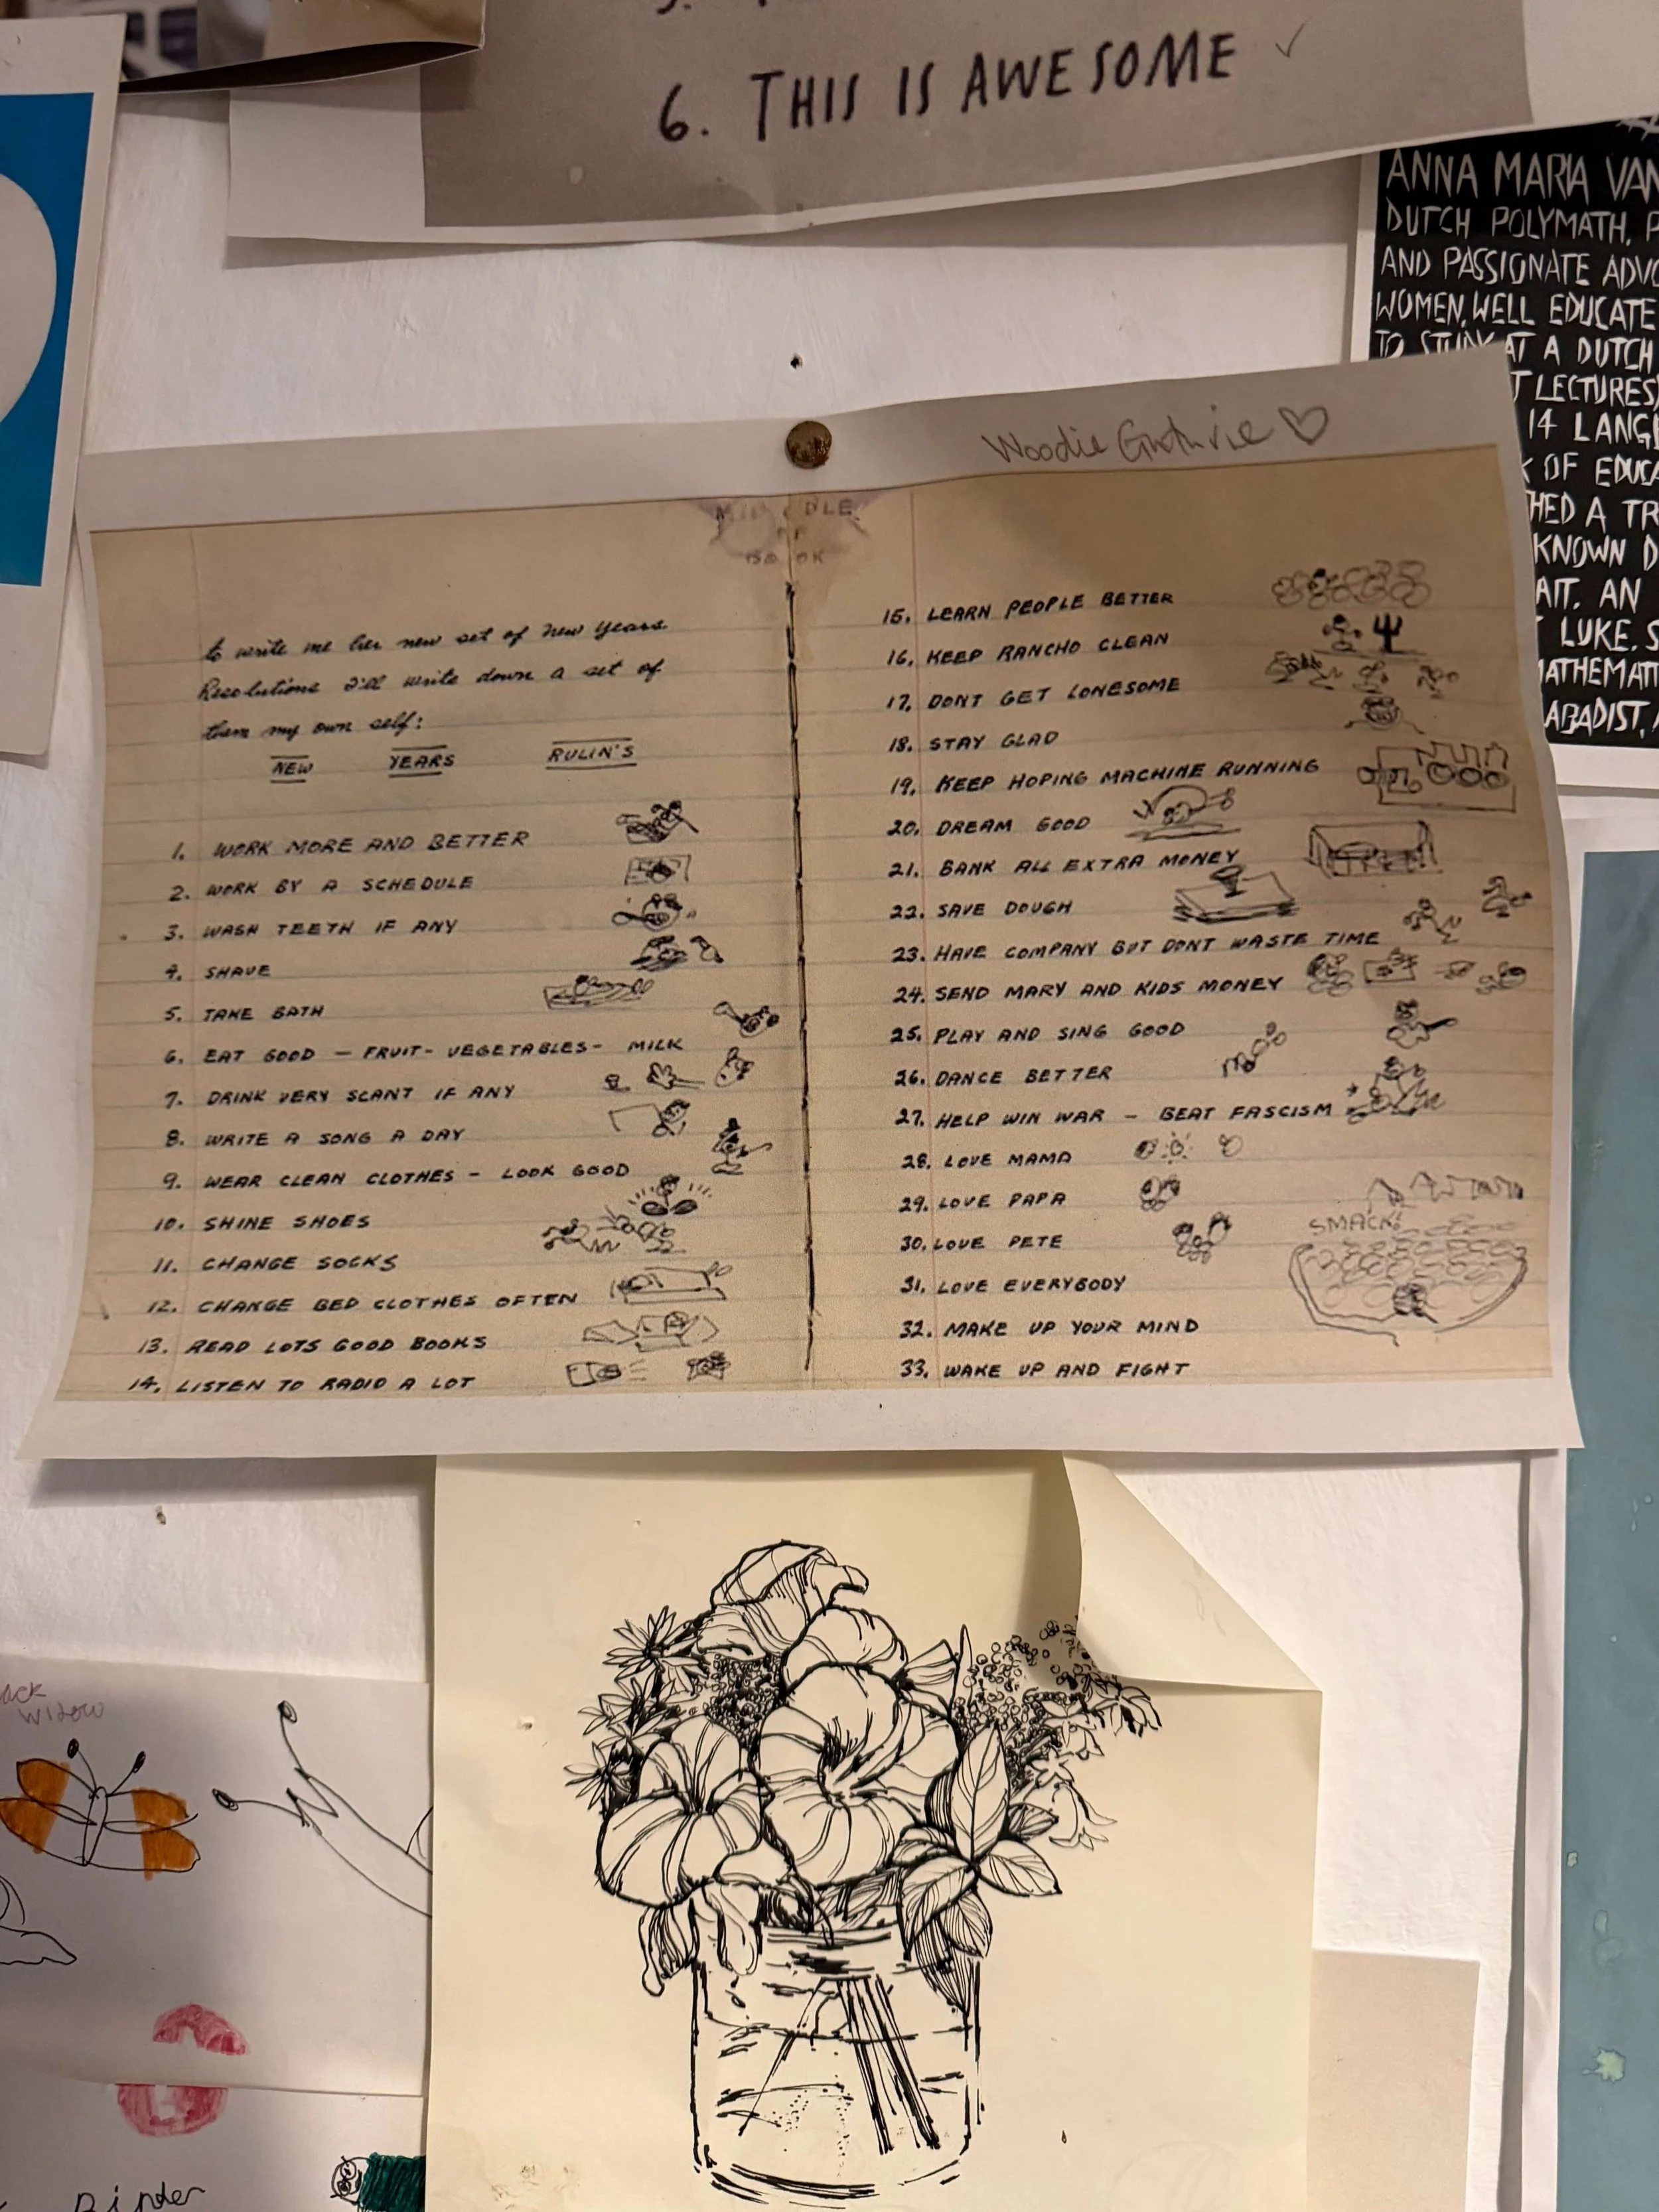 6. THIS IS AWESOME ✓
ANNA MARIA VAN
DUTCH POLYMATH, P
AND PASSIONATE ADVO
WOMEN, WELL EDUCATE
TO STUDY AT A DUTCH
T LECTURES)
14 LANG
OF EDUCA
HED A TR
KNOWN D
AIT. AN
LUKE. S
MATHEMATI
ABADIST,
Woodie Guthrie ♡
MIDDLE
OF
BOOK
to write me her new set of New Years
Resolutions I'll write down a set of
them my own self:
NEW YEARS RULIN'S
1. WORK MORE AND BETTER
2. WORK BY A SCHEDULE
3. WASH TEETH IF ANY
4. SHAVE
5. TAKE BATH
6. EAT GOOD — FRUIT - VEGETABLES - MILK
7. DRINK VERY SCANT IF ANY
8. WRITE A SONG A DAY
9. WEAR CLEAN CLOTHES - LOOK GOOD
10. SHINE SHOES
11. CHANGE SOCKS
12. CHANGE BED CLOTHES OFTEN
13. READ LOTS GOOD BOOKS
14. LISTEN TO RADIO A LOT
15. LEARN PEOPLE BETTER
16. KEEP RANCHO CLEAN
17. DONT GET LONESOME
18. STAY GLAD
19. KEEP HOPING MACHINE RUNNING
20. DREAM GOOD
21. BANK ALL EXTRA MONEY
22. SAVE DOUGH
23. HAVE COMPANY BUT DONT WASTE TIME
24. SEND MARY AND KIDS MONEY
25. PLAY AND SING GOOD
26. DANCE BETTER
27. HELP WIN WAR - BEAT FASCISM
28. LOVE MAMA
29. LOVE PAPA
30. LOVE PETE
31. LOVE EVERYBODY
SMACK!
32. MAKE UP YOUR MIND
33. WAKE UP AND FIGHT
ack
widow
Binder